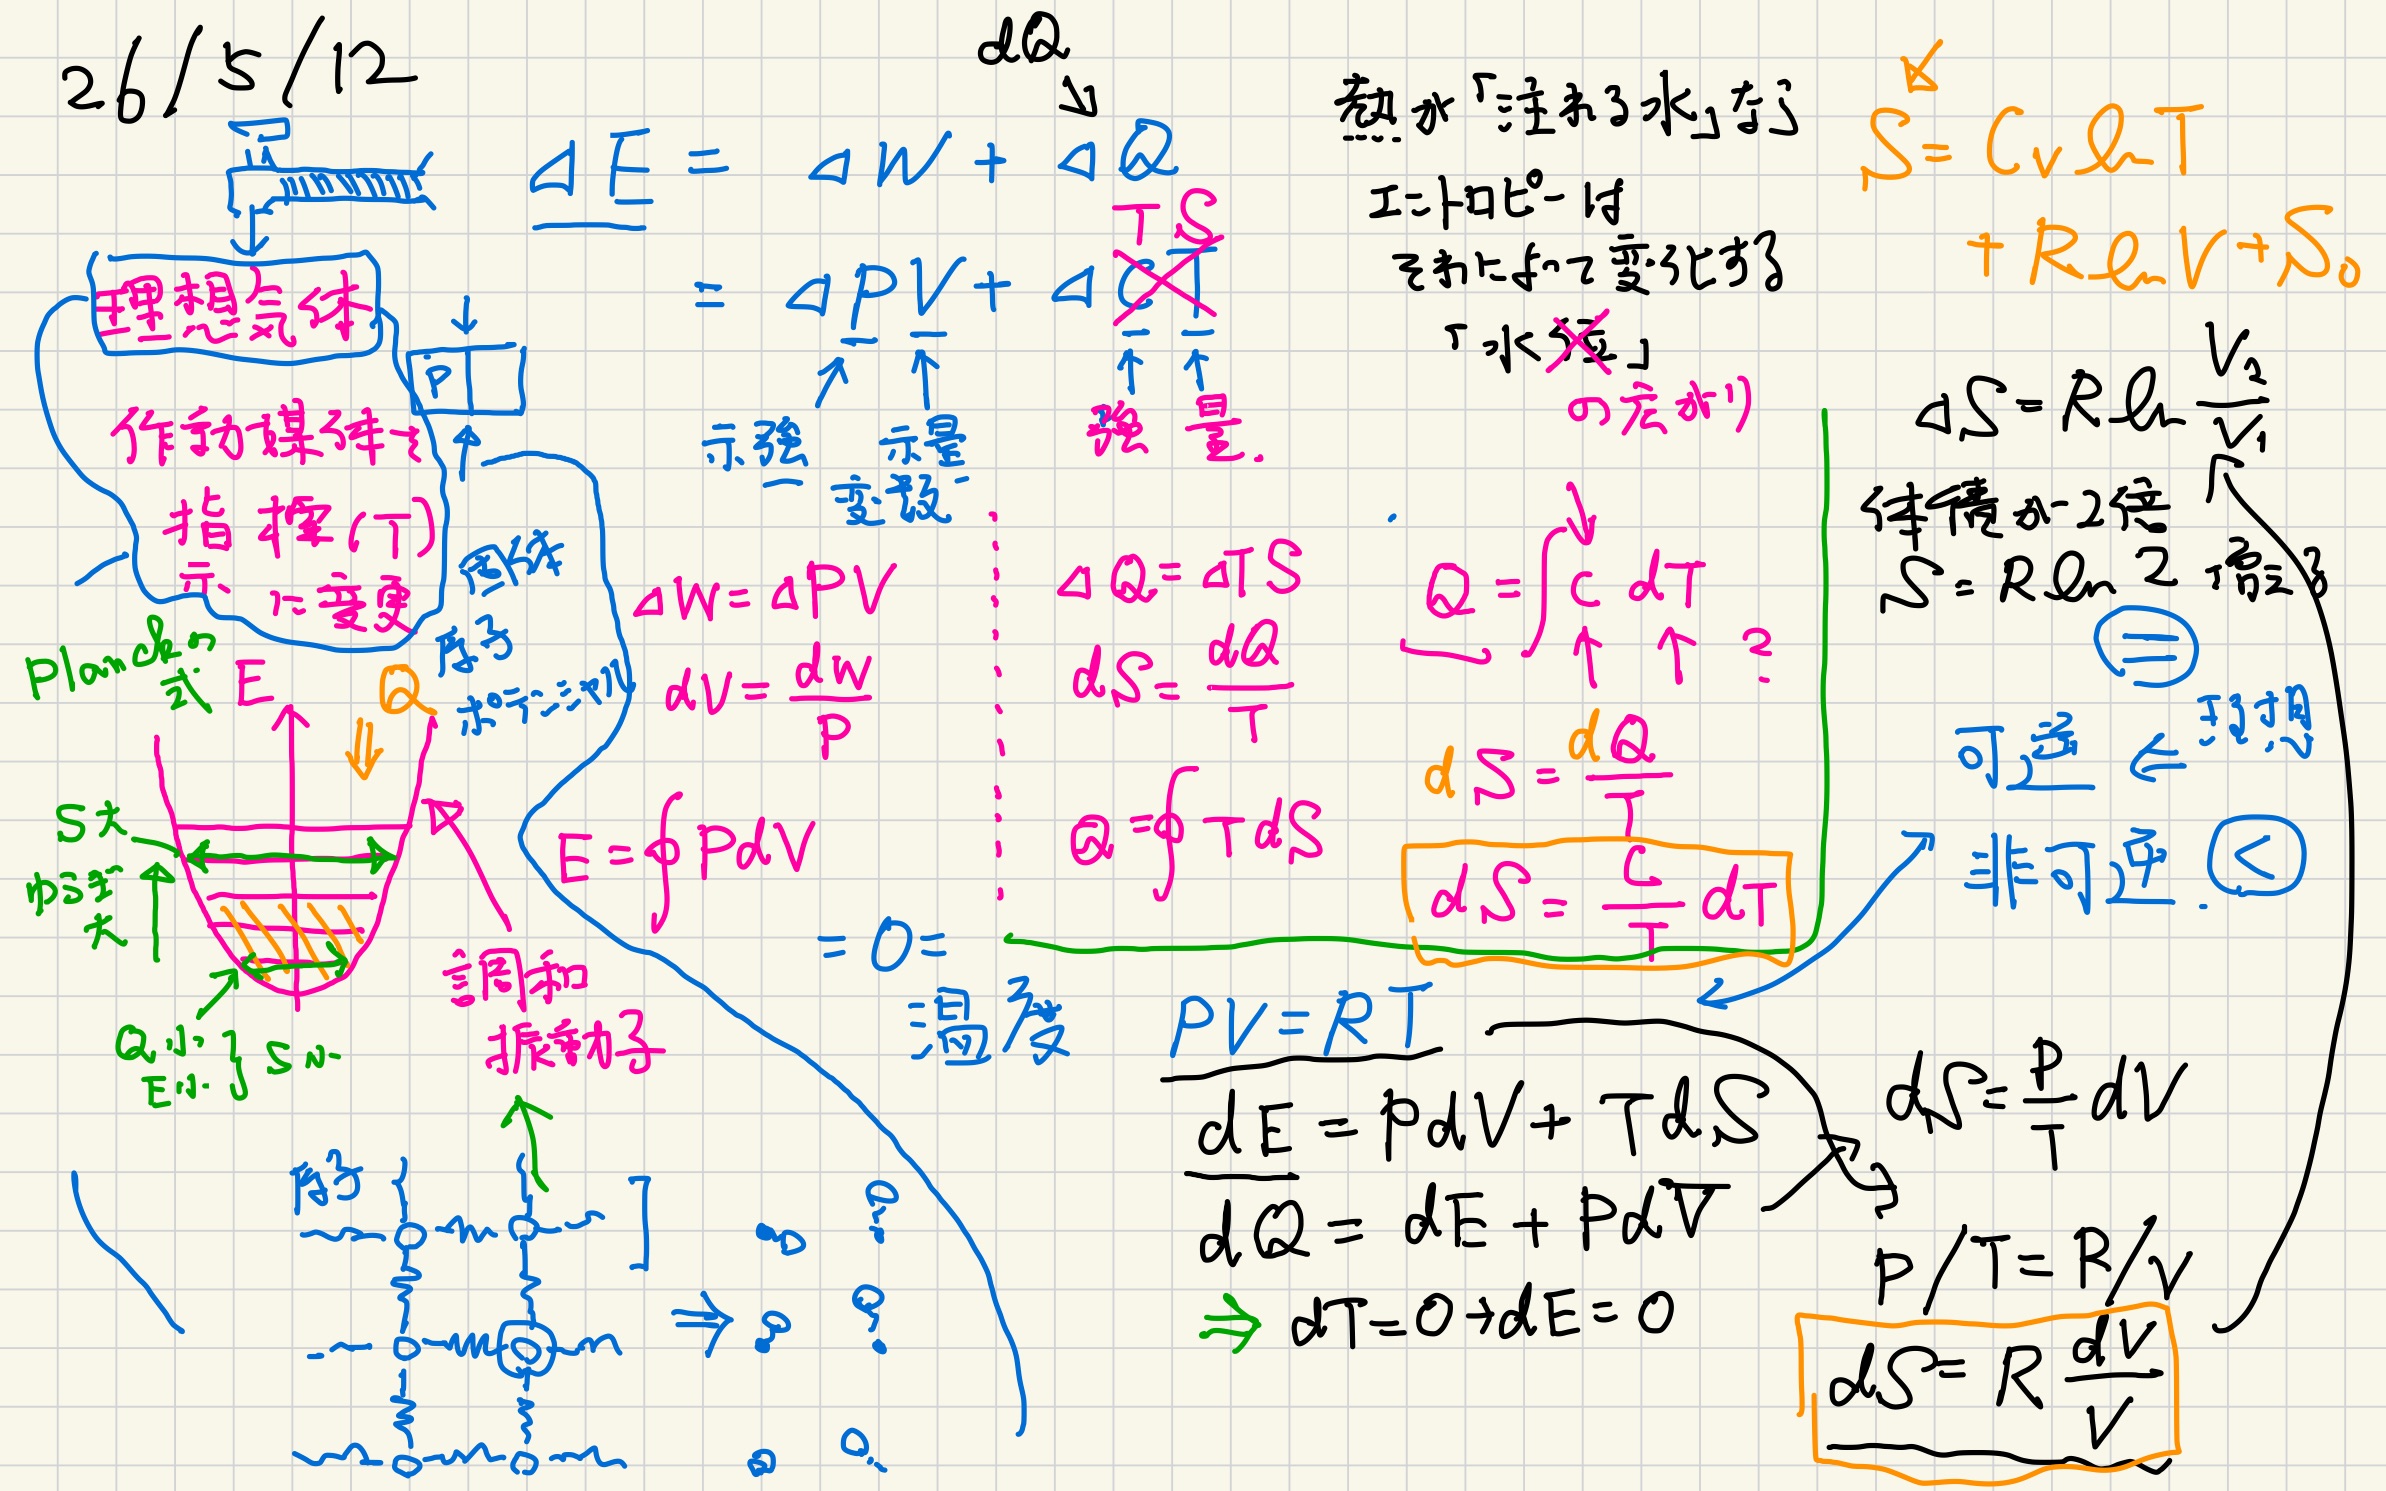 26/5/12
dQ
ΔE = ΔW + ΔQ
= ΔPV + Δ CT
TS
示強 示量
変数
強 量.
理想気体
P
作動媒体を
指標(T)
示 に変更
固体
原子
ポテンシャル
Planckの
E
Q
S大
ゆらぎ
大
Q小
E小 } S小
調和
振動子
原子
ΔW = ΔPV
dV = dW/P
E = ∮PdV
= 0 =
温度
ΔQ = ΔTS
dS = dQ/T
Q = ∮TdS
熱が「注がれる水」なら
エントロピーは
それによって変化する
「水位」
の広がり
Q = ∫C dT ?
dS = dQ/T
dS = C/T dT
S = Cv ln T
+ R ln V + S₀
ΔS = R ln V₂/V₁
体積が2倍
S = R ln 2 増える
=
可逆 ⇐ 準静
非可逆. <
PV = RT
dE = PdV + TdS
dQ = dE + PdV
⇒ dT = 0 → dE = 0
dS = P/T dV
P/T = R/V
dS = R dV/V